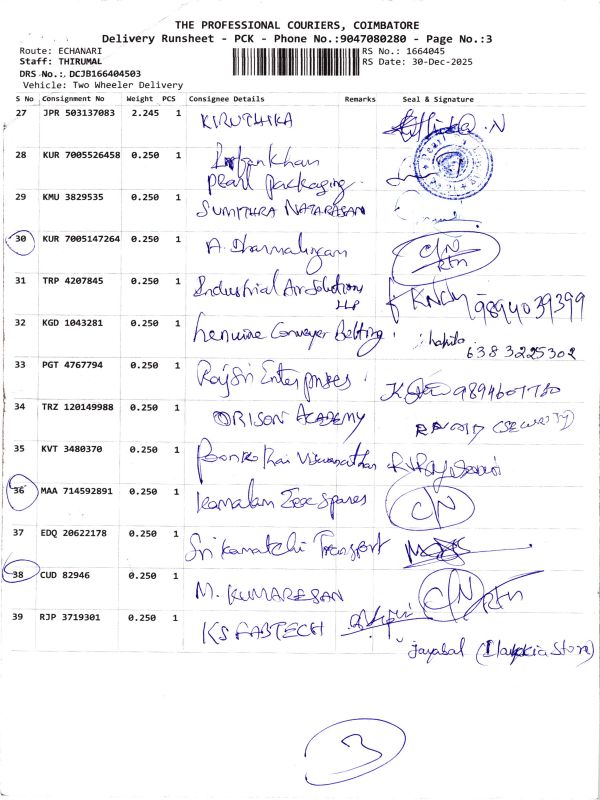 THE PROFESSIONAL COURIERS, COIMBATORE
Delivery Runsheet - PCK - Phone No.:9047080280 - Page No.:3
Route: ECHANARI
RS No.: 1664045
Staff: THIRUMAL
RS Date: 30-Dec-2025
DRS No.: DCJB166404503
Vehicle: Two Wheeler Delivery
S No Consignment No Weight PCS Consignee Details Remarks Seal & Signature
27 JPR 503137083 2.245 1 KIRUTHIKA
28 KUR 7005526458 0.250 1
Pearl packaging
29 KMU 3829535 0.250 1 SUMITHRA NATARASAN
30 KUR 7005147264 0.250 1 A. Dharmalingam C/N
rtn
31 TRP 4207845 0.250 1 Industrial Air Solutions
LLP
9894039399
32 KGD 1043281 0.250 1 Genuine Conveyer Belting
6383225302
33 PGT 4767794 0.250 1 Rajsri Enterprises
34 TRZ 120149988 0.250 1 ORISON ACADEMY
35 KVT 3480370 0.250 1
36 MAA 714592891 0.250 1 Kamalam Spares C/N
37 EDQ 20622178 0.250 1 Sri Kamatchi Transport
38 CUD 82946 0.250 1 M. KUMARESAN C/N rtn
39 RJP 3719301 0.250 1 KS FABTECH
Jayabal
3